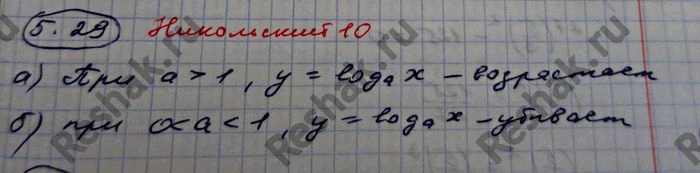 5.29 Никольский 10
а) При a > 1, y = logₐ x – возрастает
б) при 0 < a < 1, y = logₐ x – убывает
Reshak.ru
Reshak.ru
Reshak.ru